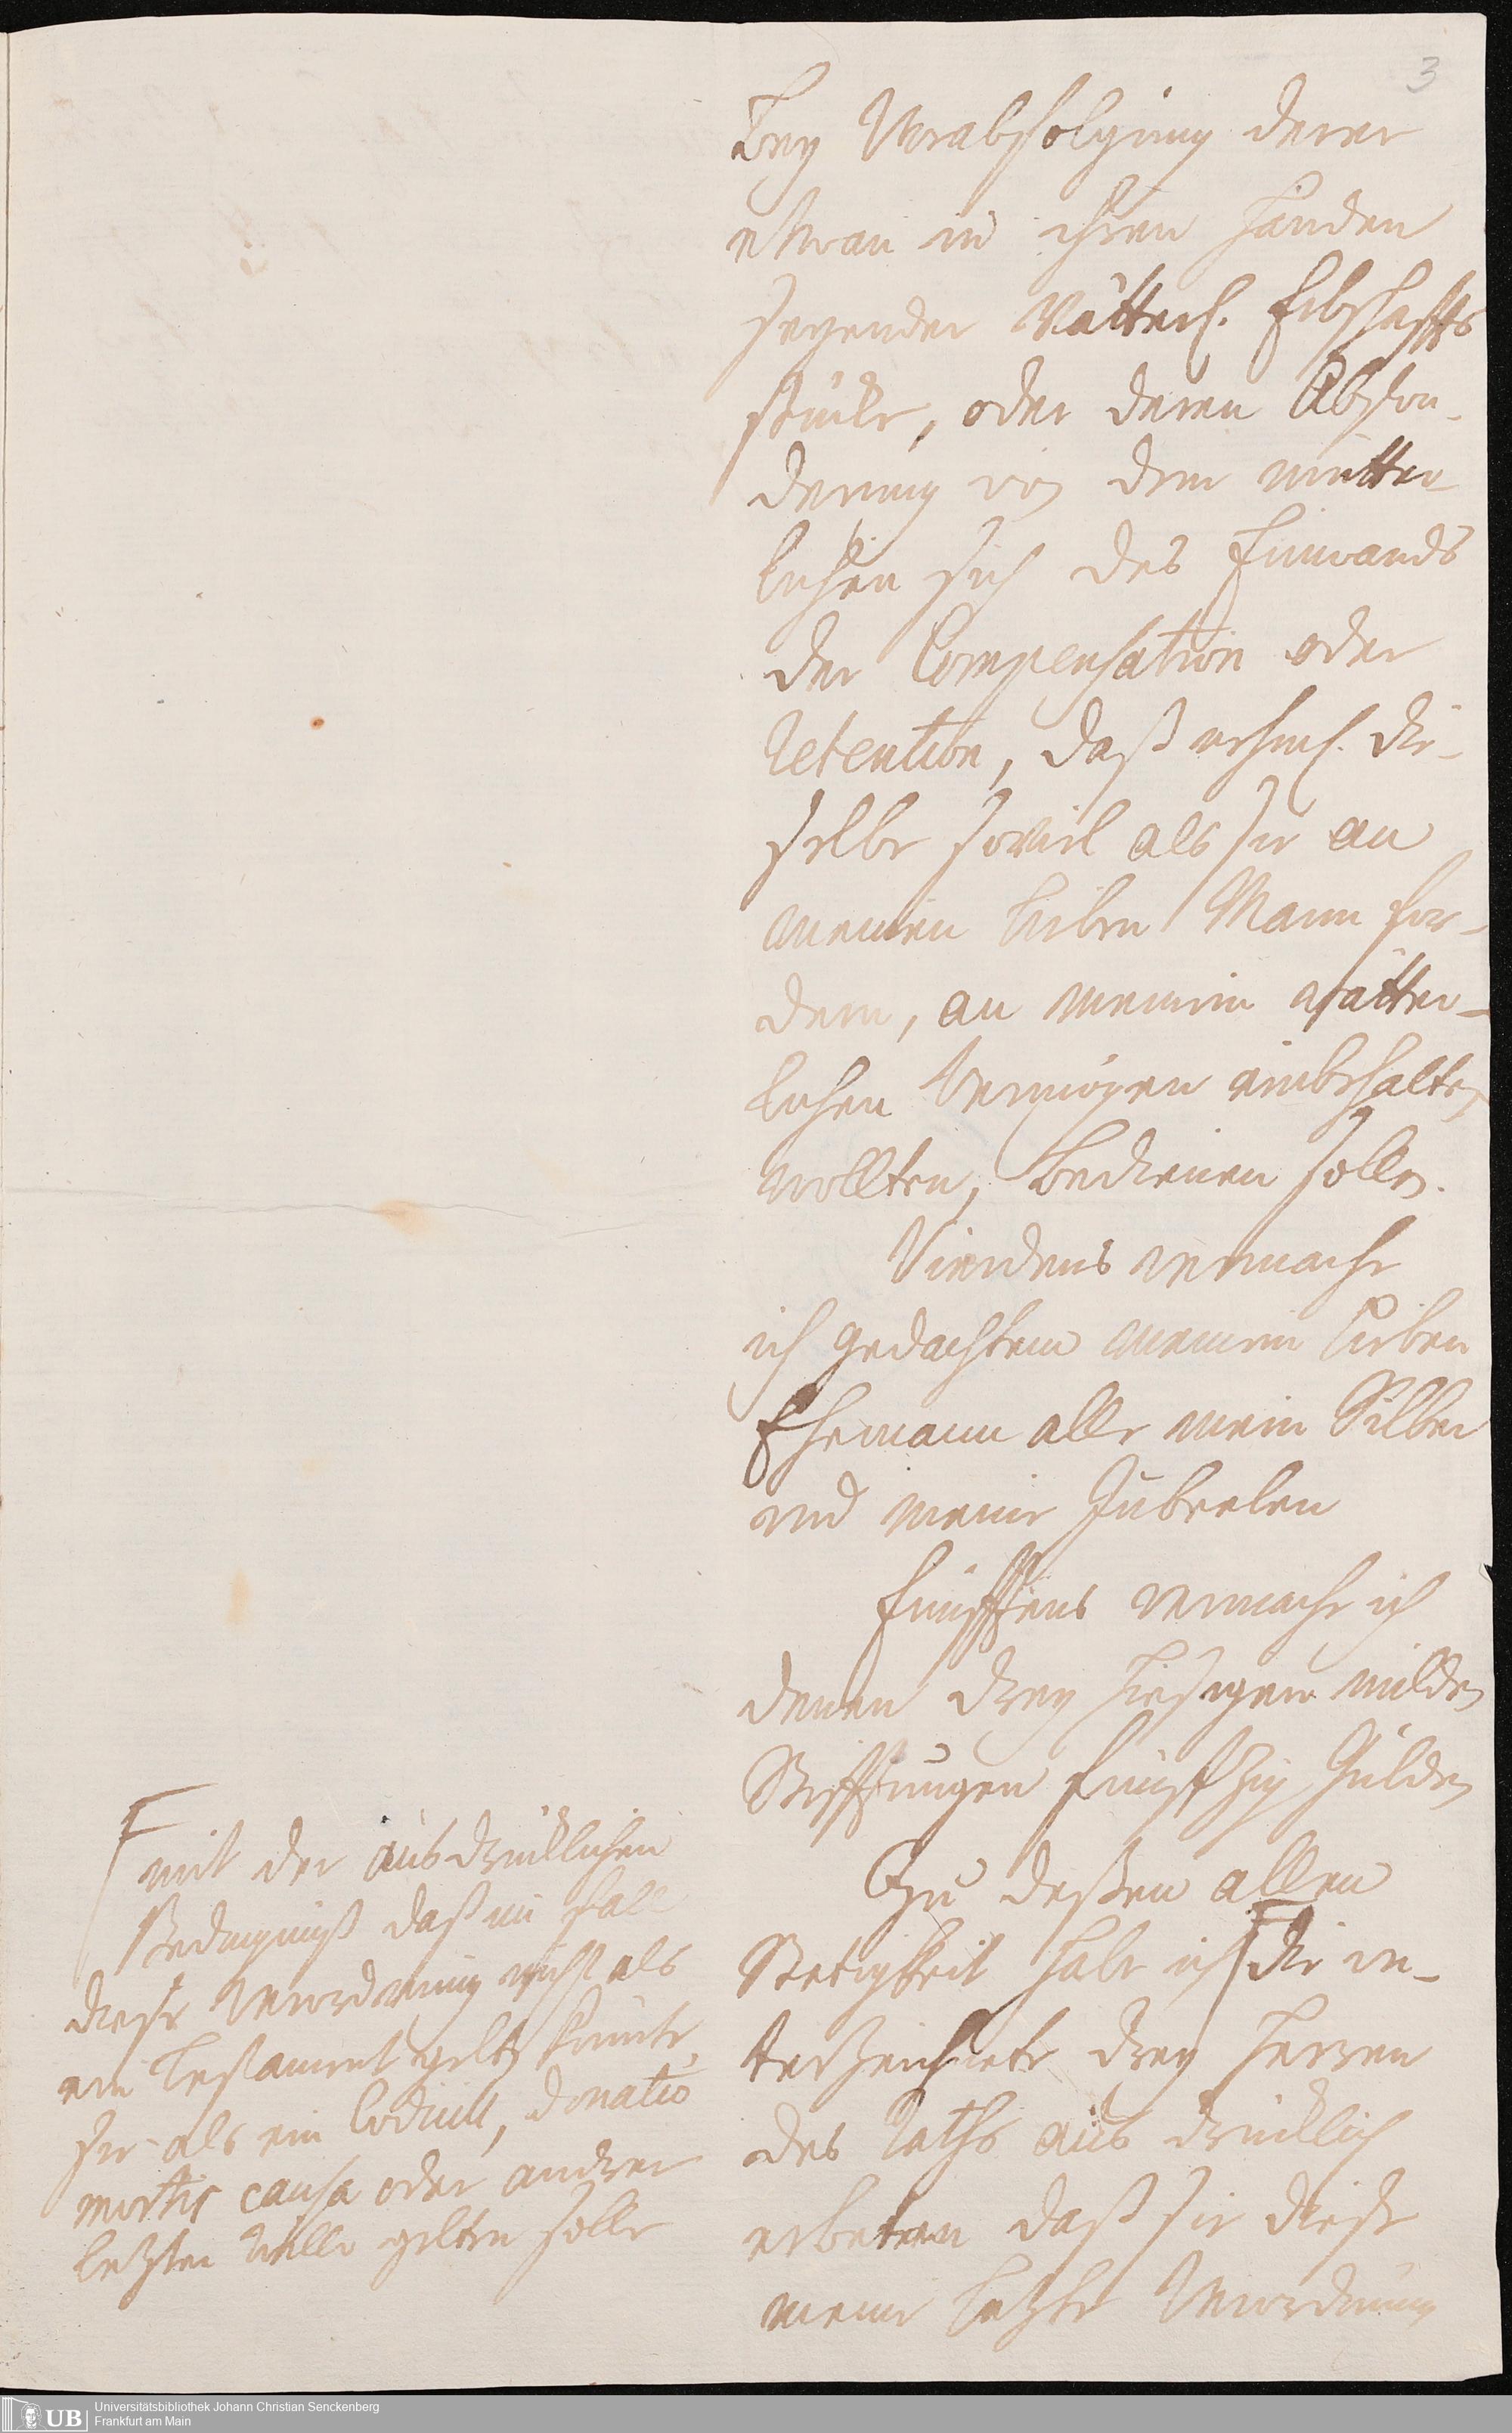 3
bey Verabfolgung derer
etwan in ihren Händen
seyender Vätterl. Erbschaffts
stücke, oder deren Abson-
derung von dem mütter-
lichen sich des Einwands
der Compensation oder
Retention, daß nehml. die-
selbe soviel als sie an
meinen lieben Mann for-
dern, an meinem vätter-
lichen Vermögen einbehalten
wollten, bedienen sollen.
Vierdens vermache
ich gedachtem meinem lieben
Ehemann alle mein Silber
und meine Jubeelen
Fünfftens vermache ich
denen drey hiesigen milden
Stifftungen fünfzig Gulden
Zu deßen allen
Stetigkeit habe ich die un-
terzeichnete drey Herren
des Raths ausdrücklich
erbetten daß sie diese
meine letzte Verordnung
mit der ausdrücklichen
Bedingniß daß im fall
diese Verordnung nicht als
ein Testament gelten könnte,
sie als ein Codicill, donatio
mortis causa oder andrer
letzter Wille gelten solle
UB
Universitätsbibliothek Johann Christian Senckenberg
Frankfurt am Main